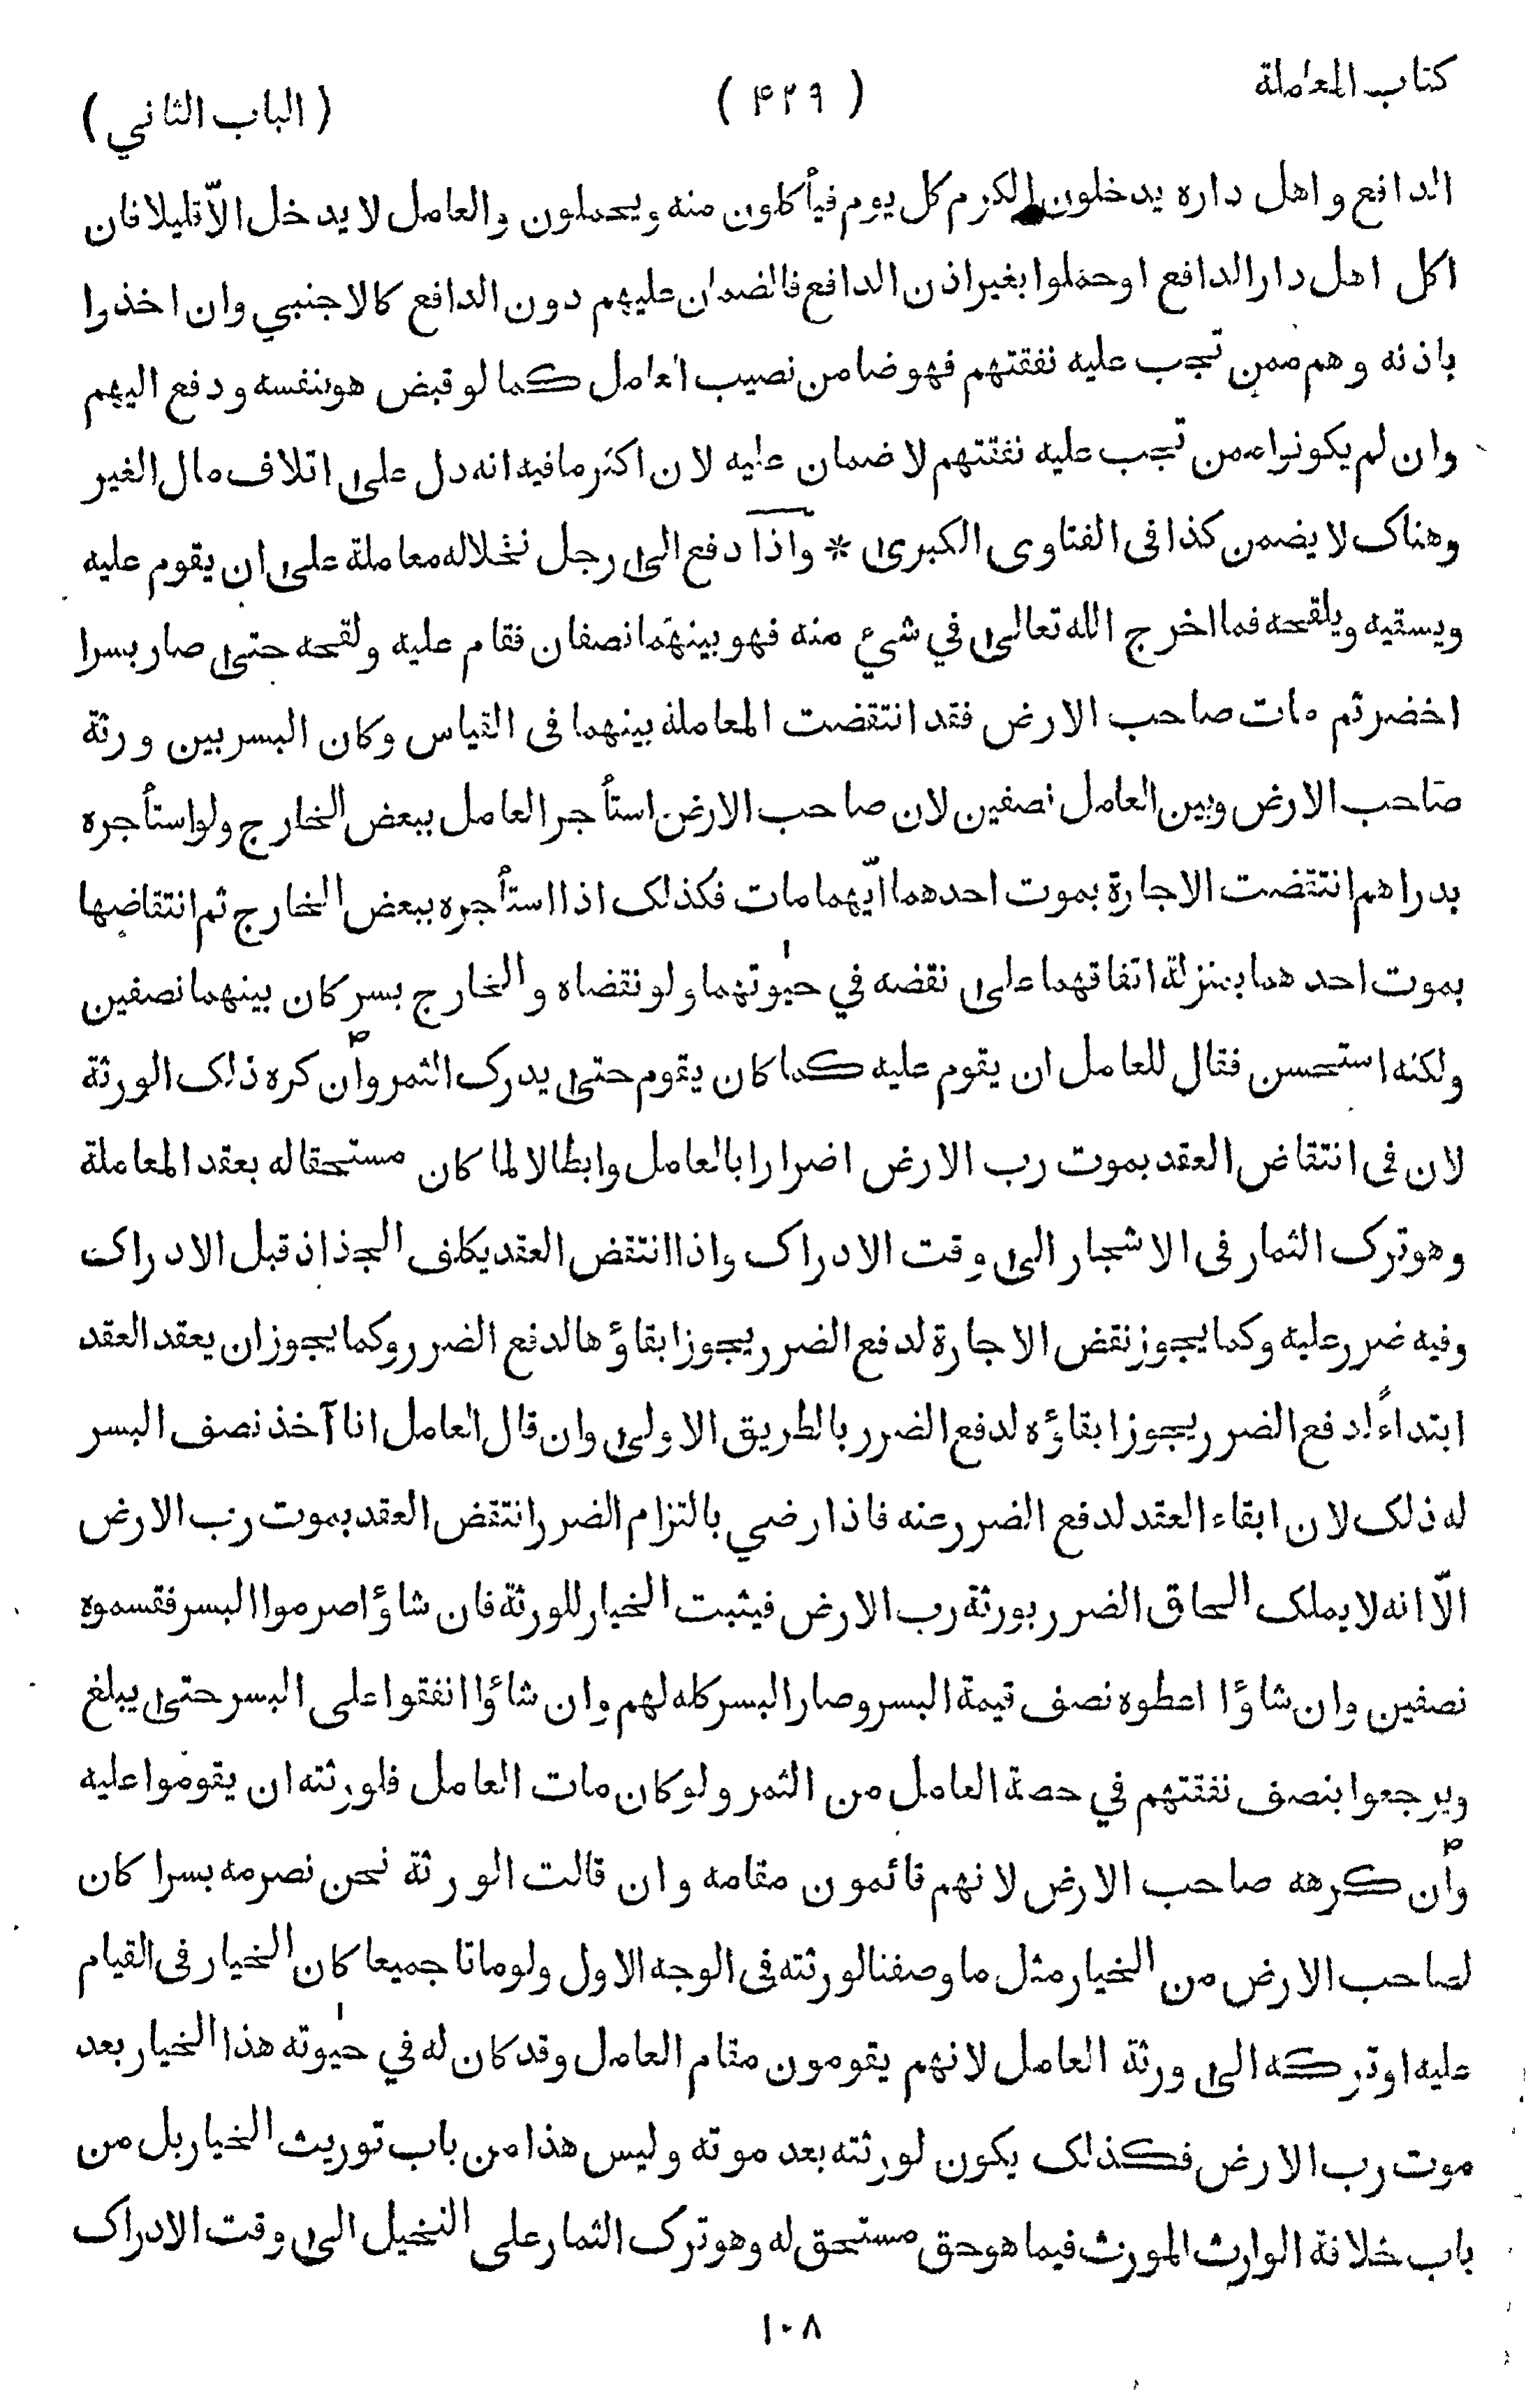 كتاب المعاملة
( ۴۲۹ )
( الباب الثاني )
الدافع و اهل داره يدخلون الكرم كل يوم فيأكلون منه ويحملون والعامل لا يدخل الاّ قليلا فان
اكل اهل دار الدافع او حملوا بغير اذن الدافع فالضمان عليهم دون الدافع كالاجنبي وان اخذوا
باذنه وهم ممن تجب عليه نفقتهم فهو ضامن نصيب العامل كما لو قبض هو بنفسه ودفع اليهم
وان لم يكونوا ممن تجب عليه نفقتهم لا ضمان عليه لان اكثر مافيه انه دل على اتلاف مال الغير
وهناك لا يضمن كذا فى الفتاوى الكبرى * واذا دفع الى رجل نخلا له معاملة على ان يقوم عليه
ويسقيه ويلقحه فما اخرج الله تعالى في شيء منه فهو بينهما نصفان فقام عليه ولقحه حتى صار بسرا
اخضر ثم مات صاحب الارض فقد انتقضت المعاملة بينهما فى القياس وكان البسر بين ورثة
صاحب الارض وبين العامل نصفين لان صاحب الارض استأجر العامل ببعض الخارج ولو استأجره
بدراهم انتقضت الاجارة بموت احدهما ايّهما مات فكذلك اذا استأجره ببعض الخارج ثم انتقاضها
بموت احدهما بمنزلة اتفاقهما على نقضه في حيٰوتهما ولو نقضاه والخارج بسر كان بينهما نصفين
ولكنه استحسن فقال للعامل ان يقوم عليه كما كان يقوم حتى يدرك الثمر وان كره ذلك الورثة
لان فى انتقاض العقد بموت رب الارض اضرارا بالعامل وابطالا لما كان مستحقا له بعقد المعاملة
وهو ترك الثمار فى الاشجار الى وقت الادراك واذا انتقض العقد يكلف الجذاذ قبل الادراك
وفيه ضرر عليه وكما يجوز نقض الاجارة لدفع الضرر يجوز ابقاؤها لدفع الضرر وكما يجوز ان يعقد العقد
ابتداءً لدفع الضرر يجوز ابقاؤه لدفع الضرر بالطريق الاولى وان قال العامل انا آخذ نصف البسر
له ذلك لان ابقاء العقد لدفع الضرر عنه فاذا رضي بالتزام الضرر انتقض العقد بموت رب الارض
الاّ انه لا يملك الحاق الضرر بورثة رب الارض فيثبت الخيار للورثة فان شاؤا صرموا البسر فقسموه
نصفين وان شاؤا اعطوه نصف قيمة البسر وصار البسر كله لهم وان شاؤا انفقوا على البسر حتى يبلغ
ويرجعوا بنصف نفقتهم في حصة العامل من الثمر ولو كان مات العامل فلورثته ان يقوموا عليه
وان كرهه صاحب الارض لانهم قائمون مقامه وان قالت الورثة نحن نصرمه بسرا كان
لصاحب الارض من الخيار مثل ما وصفنا لورثته فى الوجه الاول ولو ماتا جميعا كان الخيار فى القيام
عليه او تركه الى ورثة العامل لانهم يقومون مقام العامل وقد كان له في حيٰوته هذا الخيار بعد
موت رب الارض فكذلك يكون لورثته بعد موته وليس هذا من باب توريث الخيار بل من
باب خلافة الوارث المورث فيما هو حق مستحق له وهو ترك الثمار على النخيل الى وقت الادراك
١٠٨